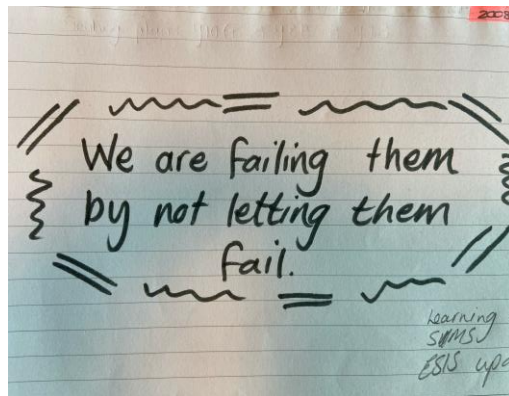 2008
We are failing them
by not letting them
fail.
Learning
ESIS